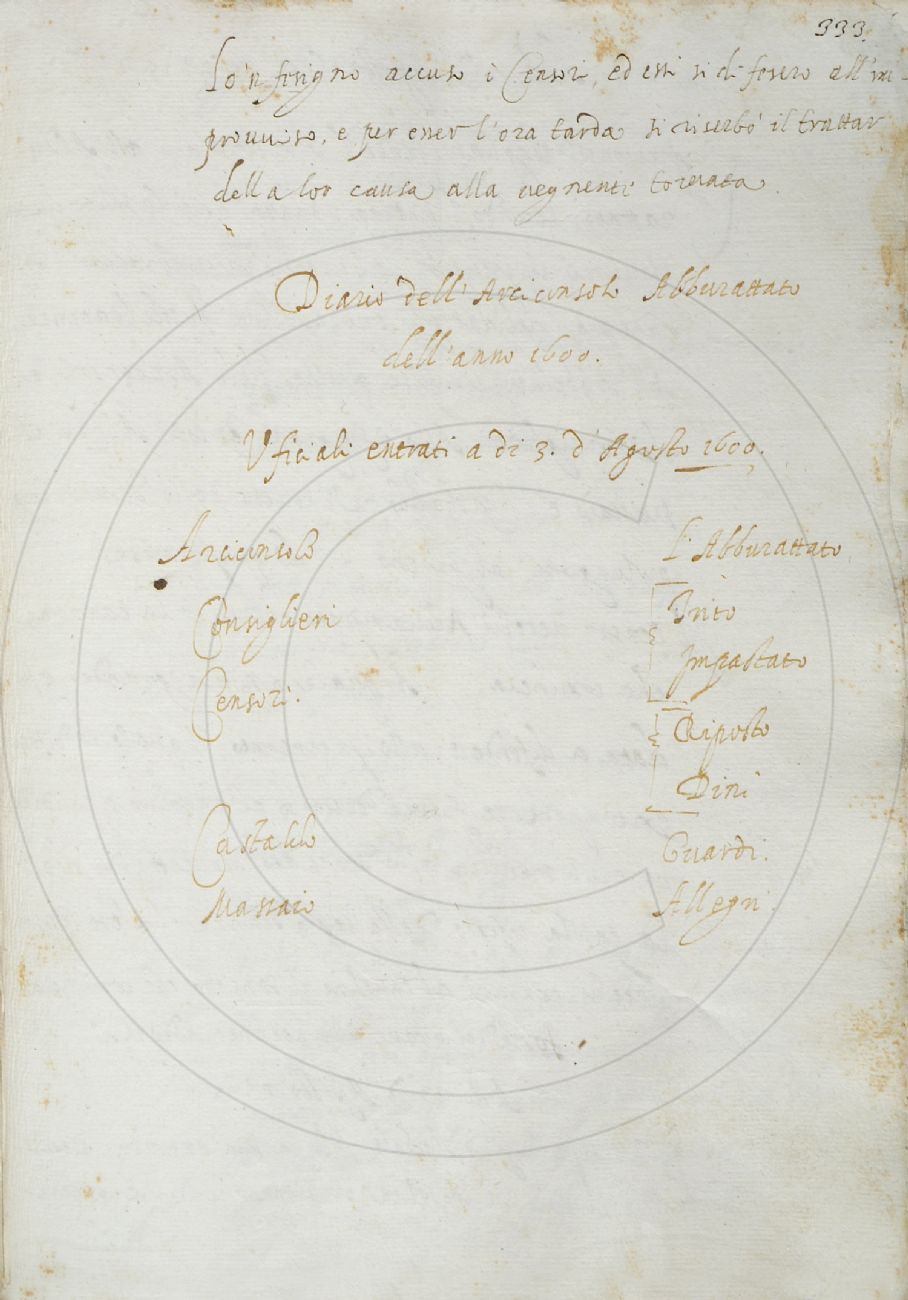 333.
Lo 'nferigno accusò i Censori, ed essi si difesero all'im-
provviso, e per esser l'ora tarda si riserbò il trattar
della lor causa alla vegnente tornata.
Diario dell'Arciconsolo Abburattato
dell'anno 1600.
Uficiali entrati a dì 3. d'Agosto 1600.
Arciconsolo L'Abburattato
Consiglieri Trito
Impastato
Censori. Riposto
Dini
Castaldo Guardi.
Massaio Allegri.